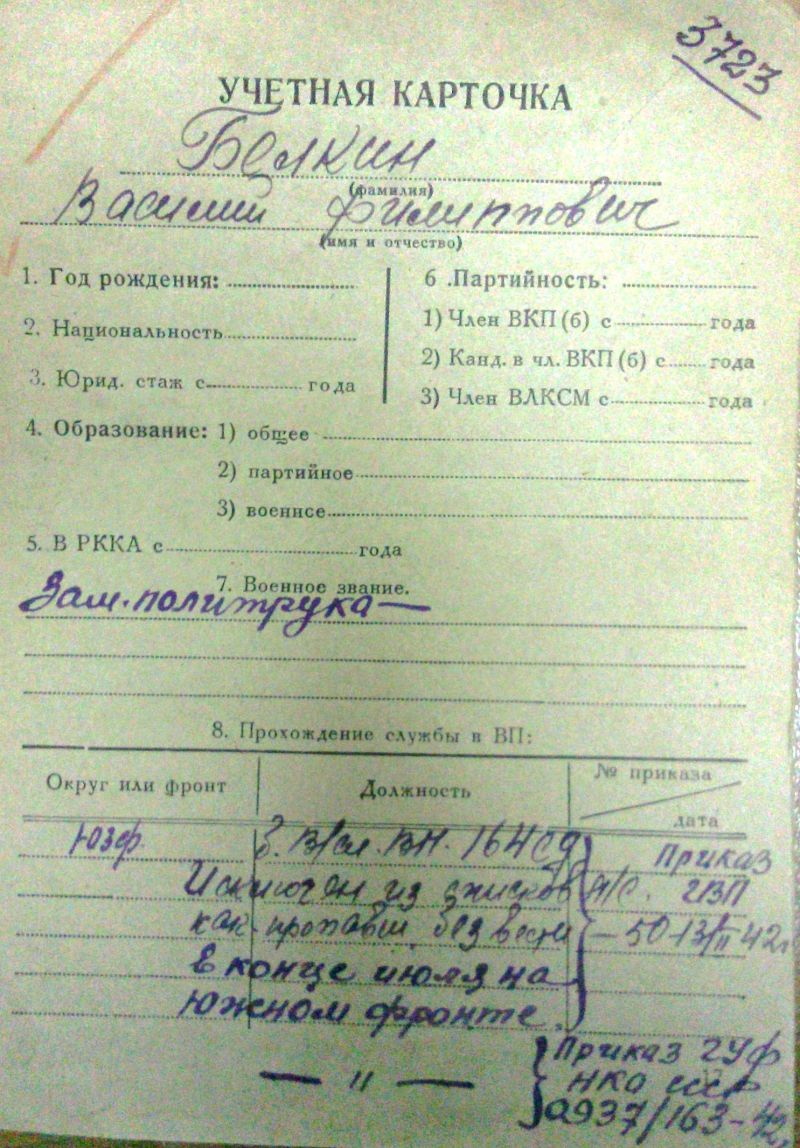 3723
УЧЕТНАЯ КАРТОЧКА
Белкин
(фамилия)
Василий Филиппович
(имя и отчество)
1. Год рождения:
2. Национальность
3. Юрид. стаж с года
6. Партийность:
1) Член ВКП(б) с года
2) Канд. в чл. ВКП(б) с года
3) Член ВЛКСМ с года
4. Образование: 1) общее
2) партийное
3) военнсе
5. В РККА с года
7. Военное звание.
Зам. политрука —
8. Прохождение службы в ВП:
Округ или фронт Должность № приказа
дата
Юзф. В/сл. ВП. 164 сд Приказ
Исключен из списков л/с. ГВП
как пропавш. без вести — 50 13/II 42г
в конце июля на
южном фронте.
— " — Приказ ГУф
НКО ссср
0937/163-42